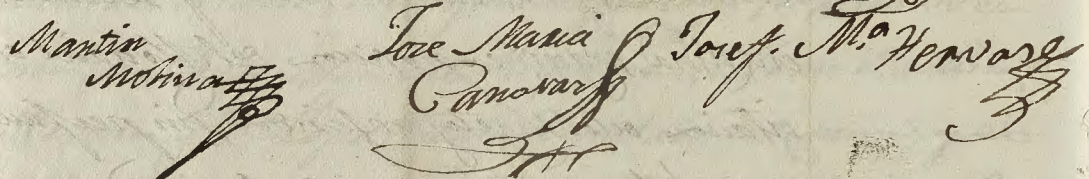 Martin
Molina
Jose Maria
Canovas
Josef. M.a Hervas